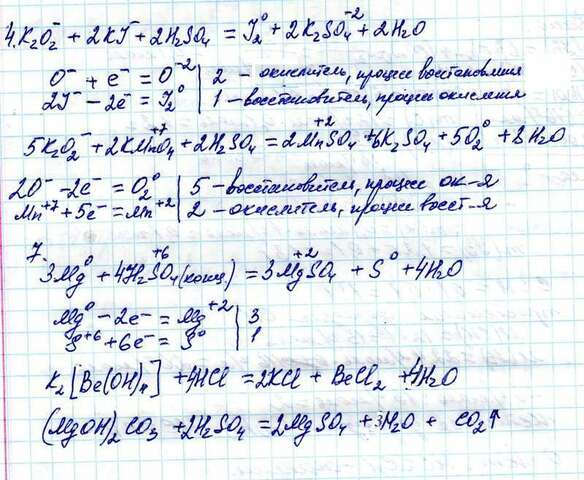 4. K₂O₂⁻ + 2KJ⁻ + 2H₂SO₄ = J₂⁰ + 2K₂SO₄⁻² + 2H₂O
O⁻ + e⁻ = O⁻² | 2 - окислитель, процесс восстановления
2J⁻ - 2e⁻ = J₂⁰ | 1 - восстановитель, процесс окисления
5K₂O₂⁻ + 2KMn⁺⁷O₄ + 2H₂SO₄ = 2Mn⁺²SO₄ + 6K₂SO₄ + 5O₂⁰ + 8H₂O
2O⁻ - 2e⁻ = O₂⁰ | 5 - восстановитель, процесс ок-я
Mn⁺⁷ + 5e⁻ = Mn⁺² | 2 - окислитель, процесс восст-я
7.
3Mg⁰ + 4H₂S⁺⁶O₄(конц) = 3Mg⁺²SO₄ + S⁰ + 4H₂O
Mg⁰ - 2e⁻ = Mg⁺² | 3
S⁺⁶ + 6e⁻ = S⁰ | 1
K₂[Be(OH)₄] + 4HCl = 2KCl + BeCl₂ + 4H₂O
(MgOH)₂CO₃ + 2H₂SO₄ = 2MgSO₄ + 3H₂O + CO₂↑